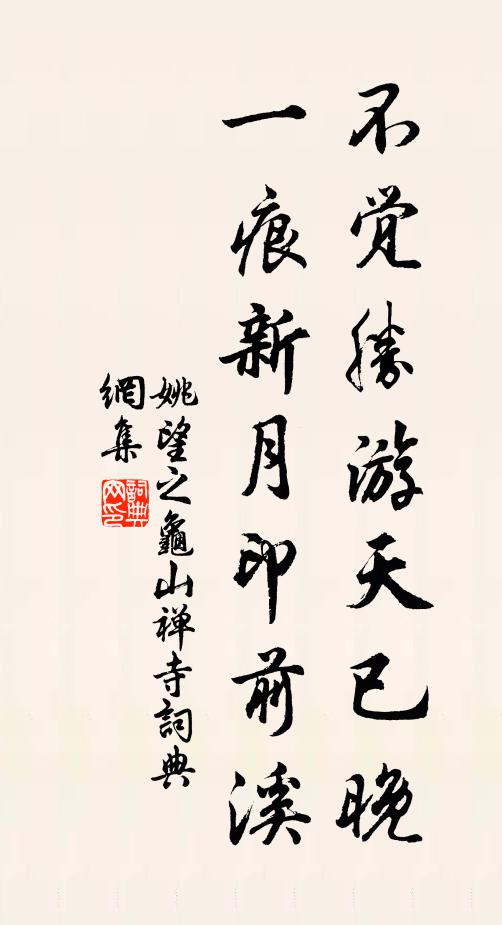 不觉勝游天已晚
一痕新月印前溪
姚望之龜山禅寺詞典
網集
詞典网印